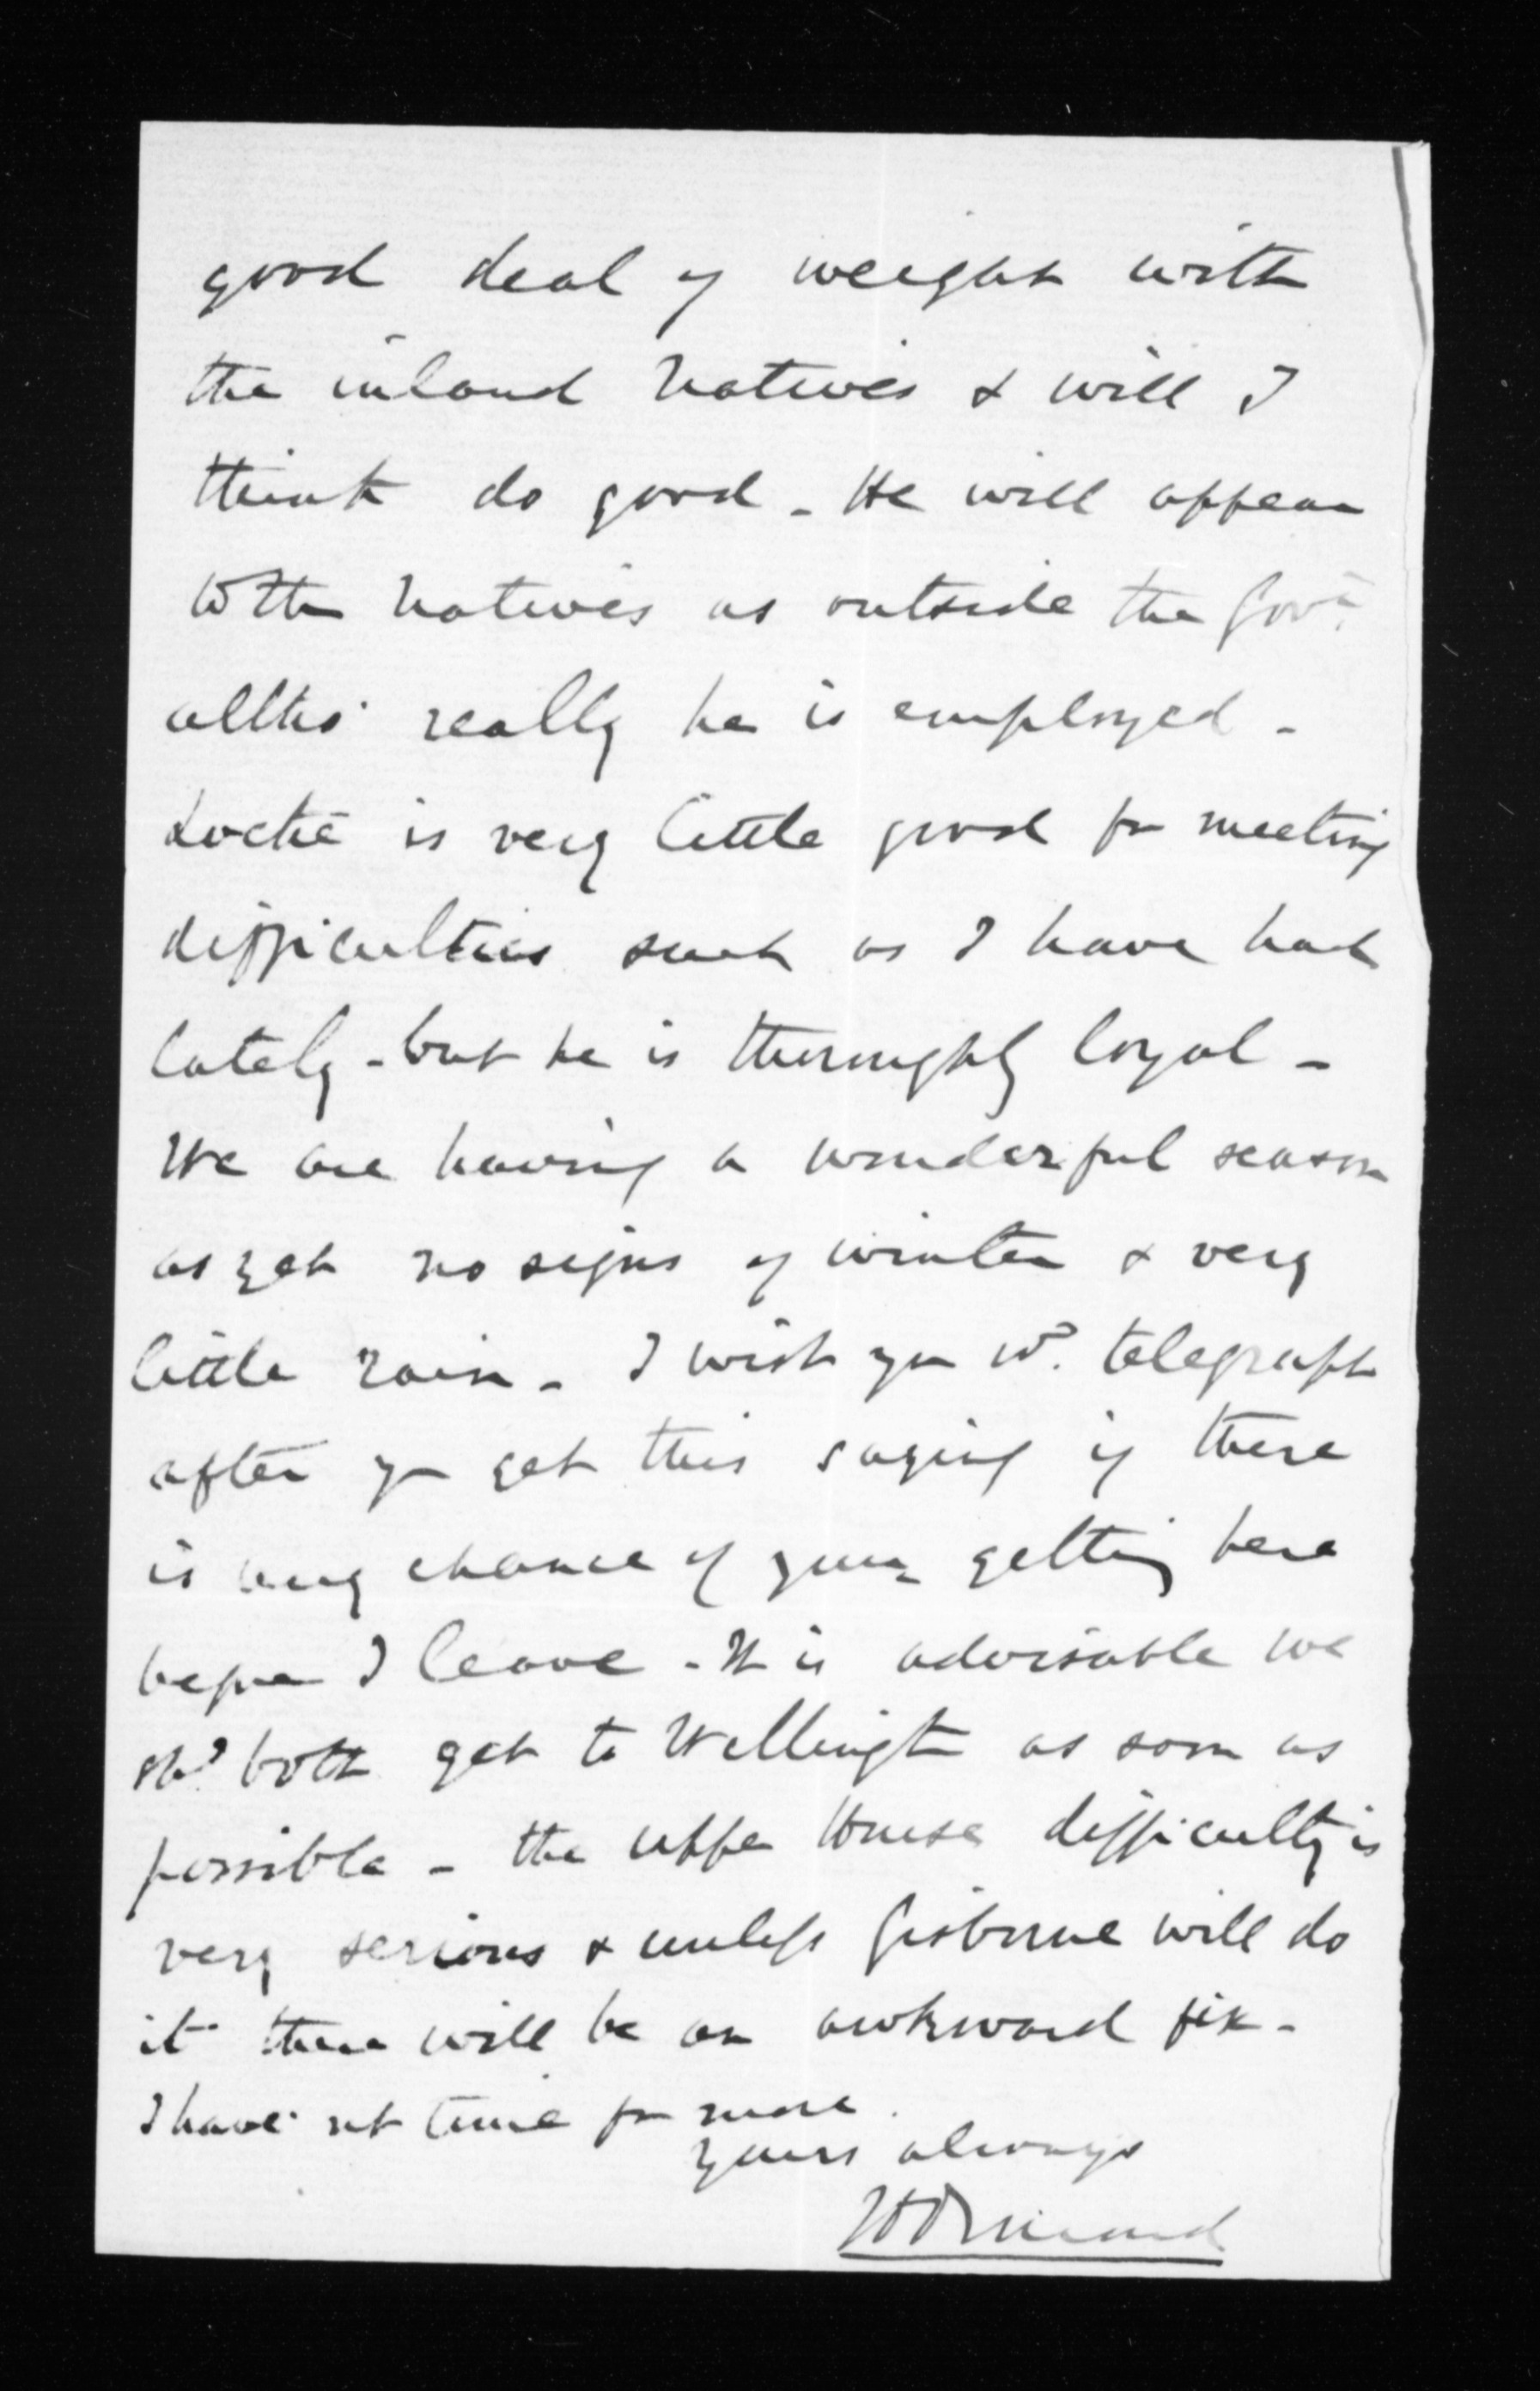 good deal of weight with
the inland Natives & will I
think do good - He will appear
to the Natives as outside the Govt.
altho' really he is employed -
Locke is very little good for meeting
difficulties such as I have had
lately - but he is thoroughly loyal -
We are having a wonderful season
as yet no signs of winter & very
little rain - I wish you wd. telegraph
after you get this saying if there
is any chance of your getting here
before I leave - It is advisable we
shd. both get to Wellington as soon as
possible - the Upper House difficulty is
very serious & unless Gisborne will do
it there will be an awkward fix -
I have not time for more.
Yours always
JD Ormond